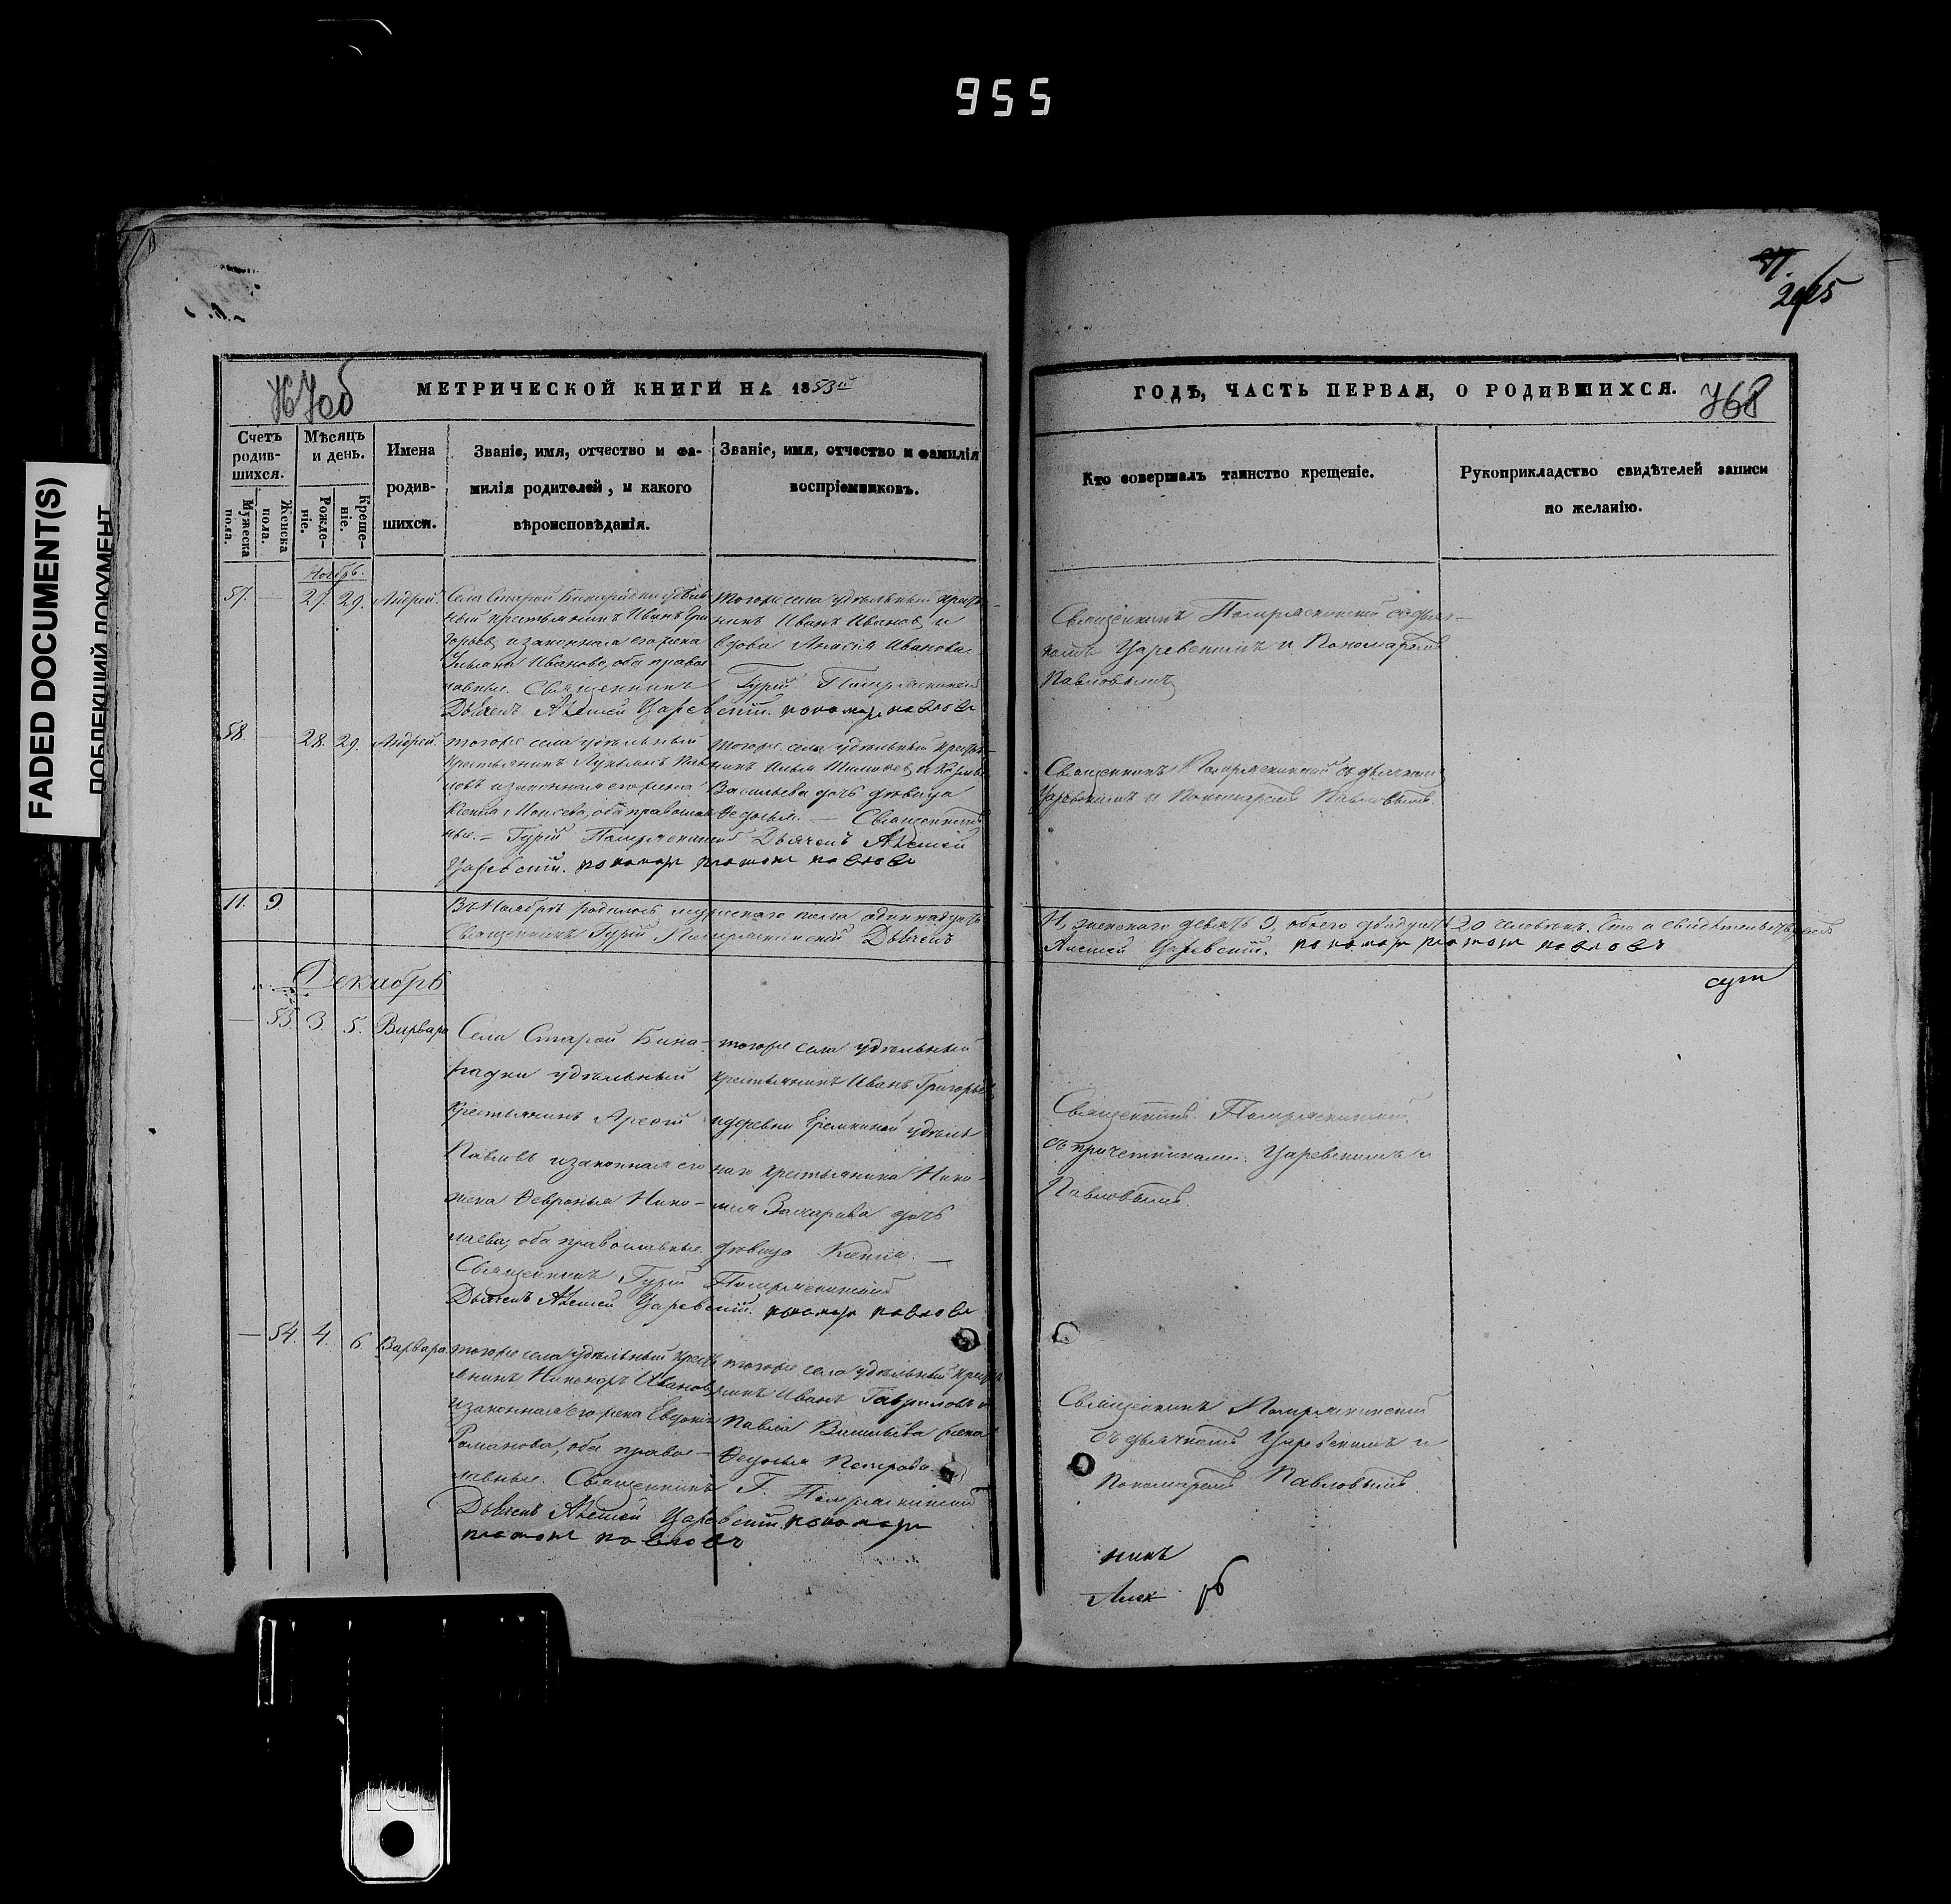 955
FADED DOCUMENT(S)
ПОБЛЕКШИЙ ДОКУМЕНТ
97.
205
767об
МЕТРИЧЕСКОЙ КНИГИ НА 1853й
ГОДЪ, ЧАСТЬ ПЕРВАЯ, О РОДИВШИХСЯ.
768
Счетъ
родив-
шихся.
Мужеска
пола.
Женска
пола.
Мѣсяцъ
и день.
Рожде-
ніе.
Креще-
ніе.
Имена
родив-
шихся.
Званіе, имя, отчество и фа-
милія родителей, и какого
вѣроисповѣданія.
Званіе, имя, отчество и фамилія
воспріемниковъ.
Кто совершалъ таинство крещеніе.
Рукоприкладство свидѣтелей записи
по желанію.
Ноябрь.
57. — 27. 29. Андрей.
Села Старой Бинарадки удѣль
ный крестьянинъ Иванъ Гри
горьевъ и законная его жена
Ульяна Иванова, оба правос
лавные. Священникъ Гурій
Дьячекъ Алексей Царевскій. пономарь павловъ
тогоже села удѣльный крестья-
нинъ Иванъ Ивановъ и
вдова Анисія Иванова.
Священникъ съ дьяч-
комъ Царевскимъ и Пономаремъ
Павловымъ
58. — 28. 29. Андрей.
тогоже села удѣльный
крестьянинъ Лукьянъ Пав
ловъ и законная его жена
Ксенія Моисеева, оба православ
ные. — Гурій Дьячекъ Алексей
Царевскій. пономарь платонъ павловъ
тогоже села удѣльный крестья-
нинъ Илья и
Васильева дочь дѣвица
Федосья. — Священникъ
Священникъ съ дьячкомъ
Царевскимъ и Пономаремъ Павловымъ.
11. 9.
Въ Ноябрѣ родилось мужескаго пола одиннадцать
11, женскаго девять 9, обоего двадцать 20 человекъ. Что и свидѣтельствуемъ
Священникъ Гурій Дьячекъ
Алексей Царевскій. пономарь платонъ павловъ
сут
Декабрь
— 53. 3. 5. Варвара
Села Старой Бина-
радки удѣльный
крестьянинъ Арефій
Павловъ и законная его
жена Февронья Нико-
лаева, оба православные.
Священникъ Гурій
Дьячекъ Алексей Царевскій. пономарь павловъ
тогоже села удѣльный
крестьянинъ Иванъ Григорьевъ
и деревни Еремкиной удѣль
наго крестьянина Нико-
лая Захарова дочь
дѣвица Ксенія. —
Священникъ
съ причетниками Царевскимъ и
Павловымъ.
— 54. 4. 6. Варвара.
тогоже села удѣльный крестья
янинъ Никоноръ Ивановъ
и законная его жена Евдокія
Романова, оба правос-
лавные. Священникъ Г.
Дьячекъ Алексей Царевскій. пономарь
платонъ павловъ
тогоже села удѣльный крестья
нинъ Иванъ Гавриловъ и
Павла Васильева жена
Федосья Петрова.
Священникъ
съ дьячкомъ Царевскимъ и
Пономаремъ Павловымъ.
никъ
Алек